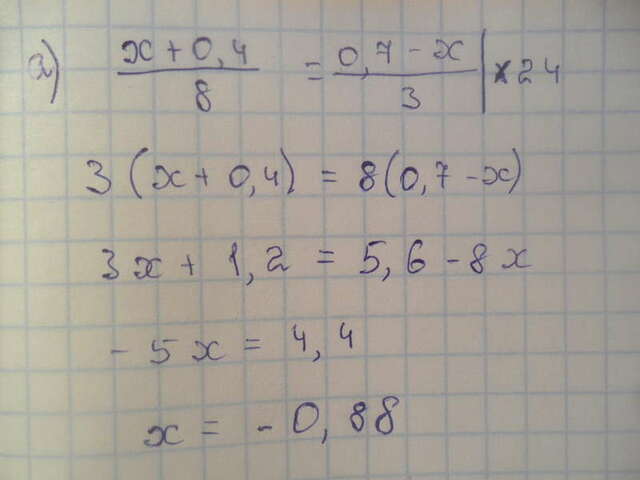 а) (x + 0,4)/8 = (0,7 - x)/3 | × 24
3(x + 0,4) = 8(0,7 - x)
3x + 1,2 = 5,6 - 8x
- 5x = 4,4
x = - 0,88